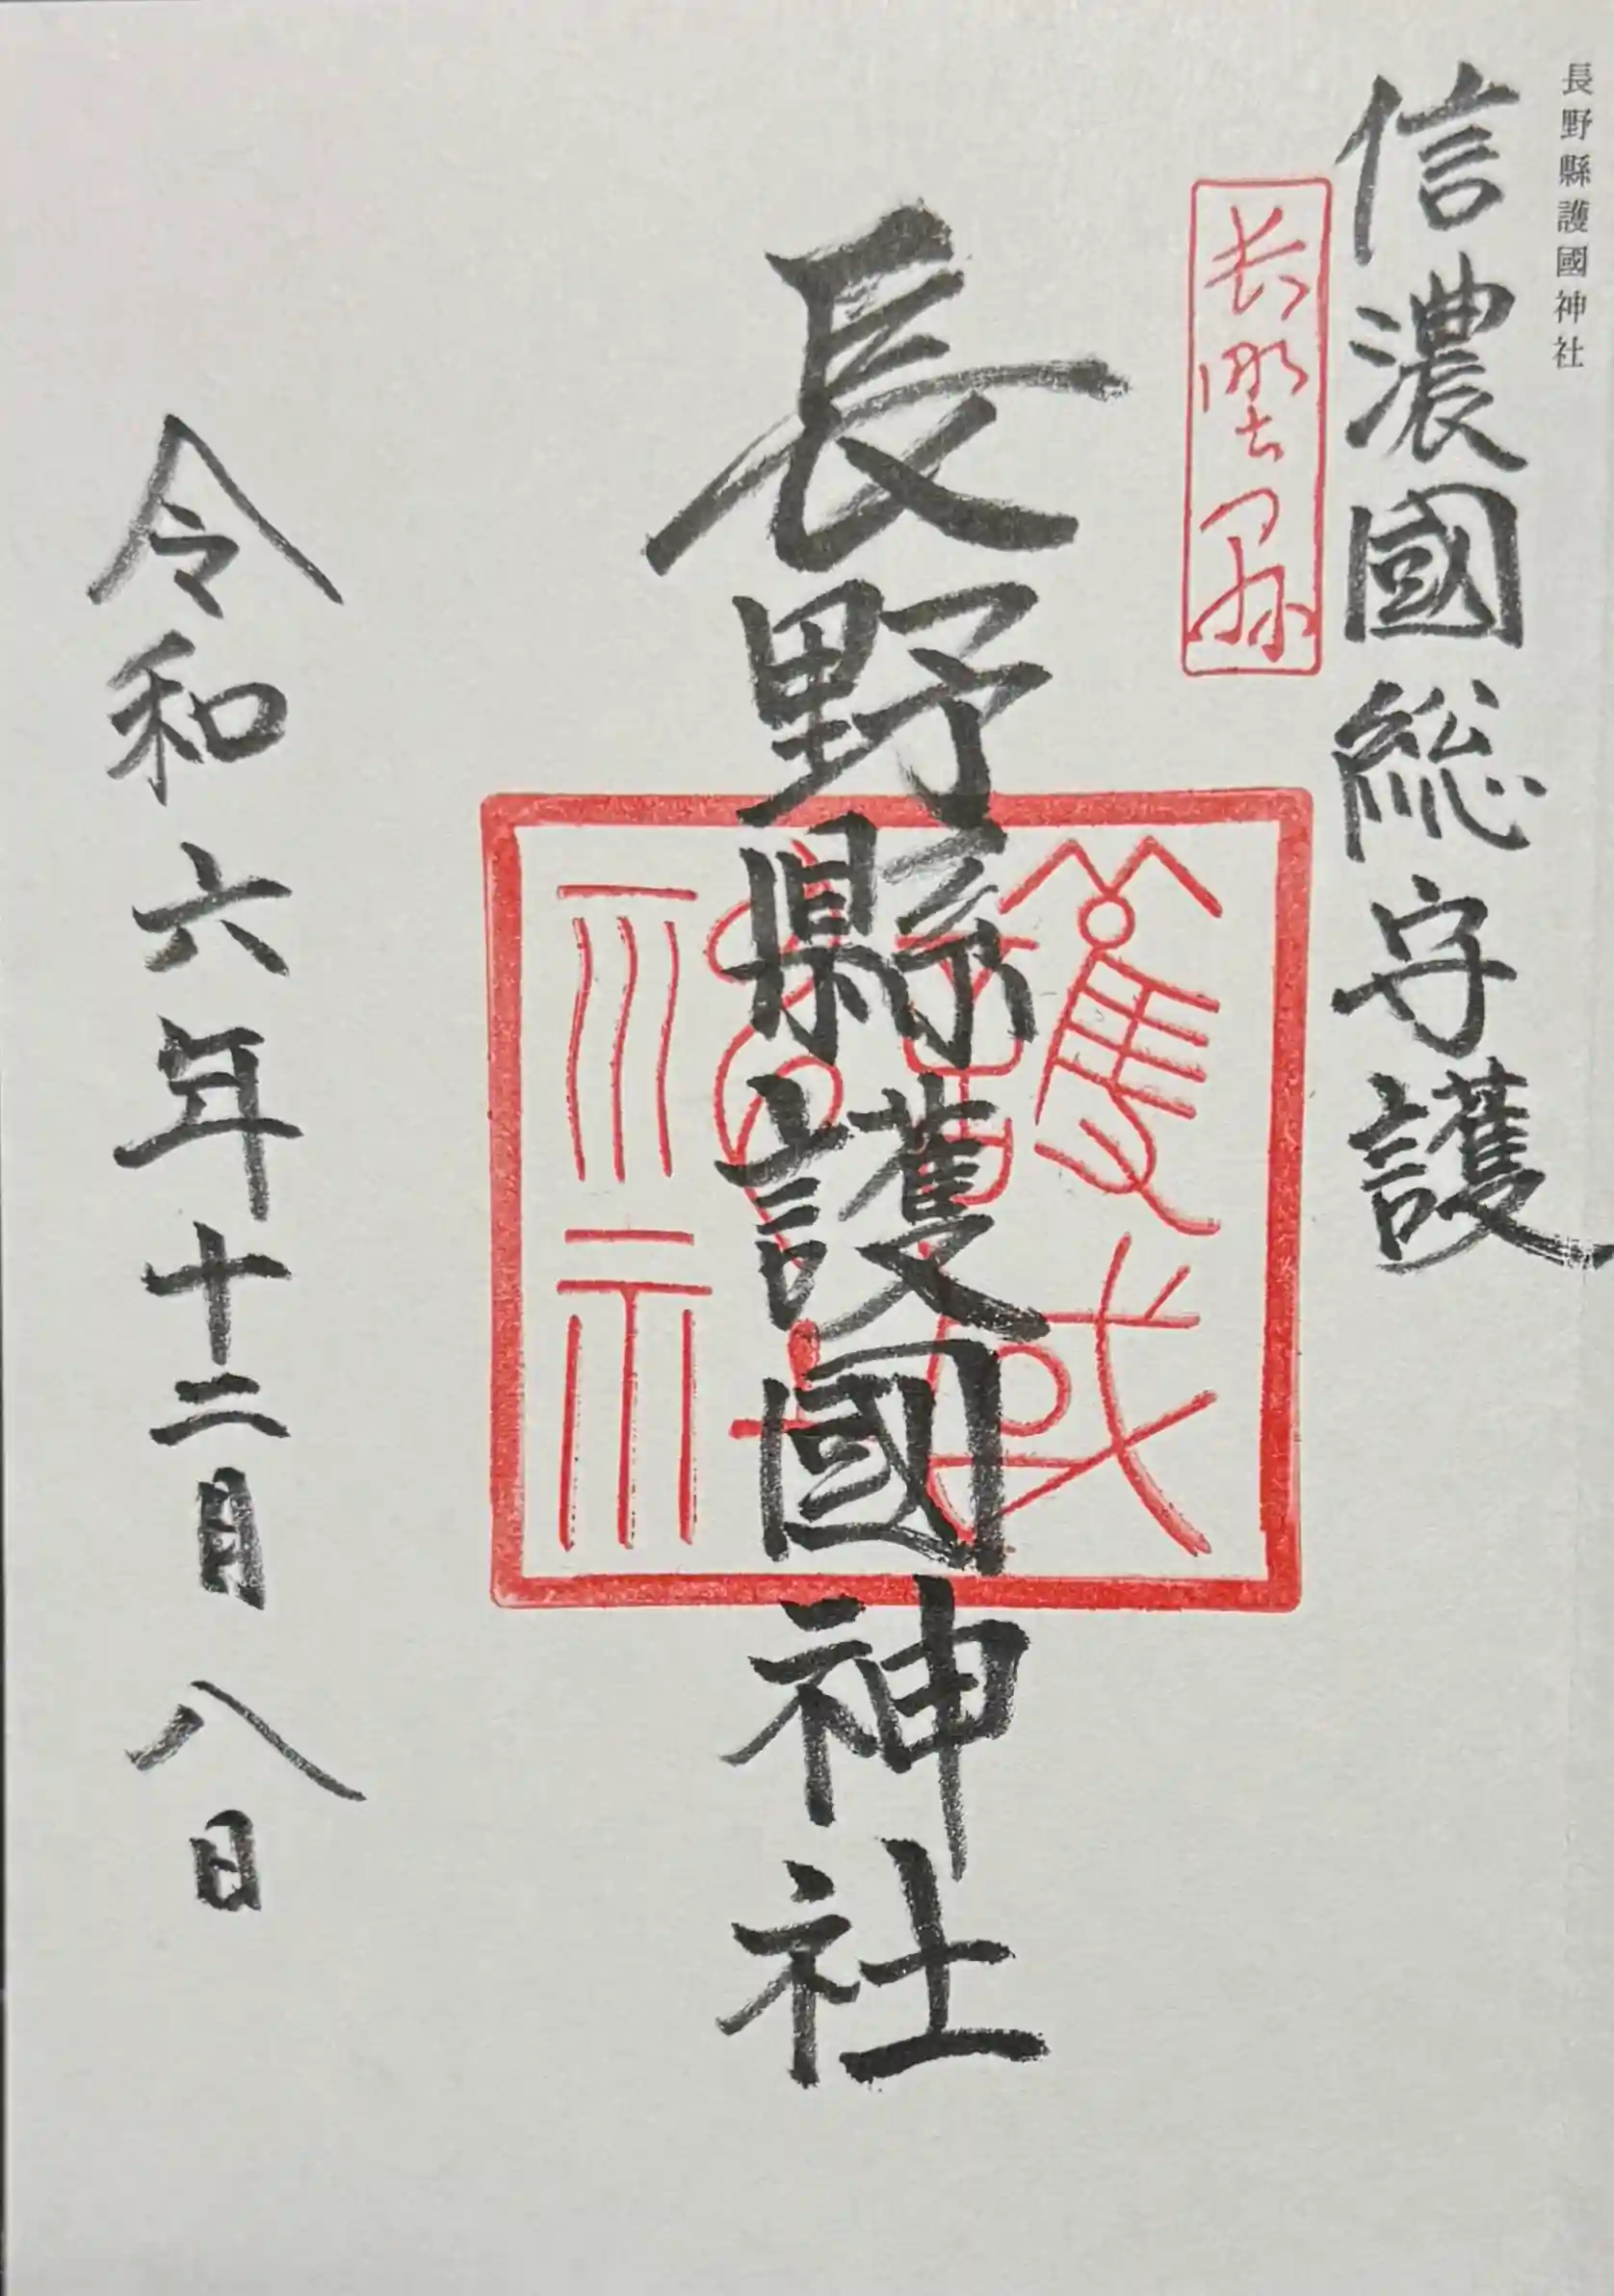 長野縣護國神社
信濃國総守護
長野県
長野縣護國神社
令和六年十二月八日